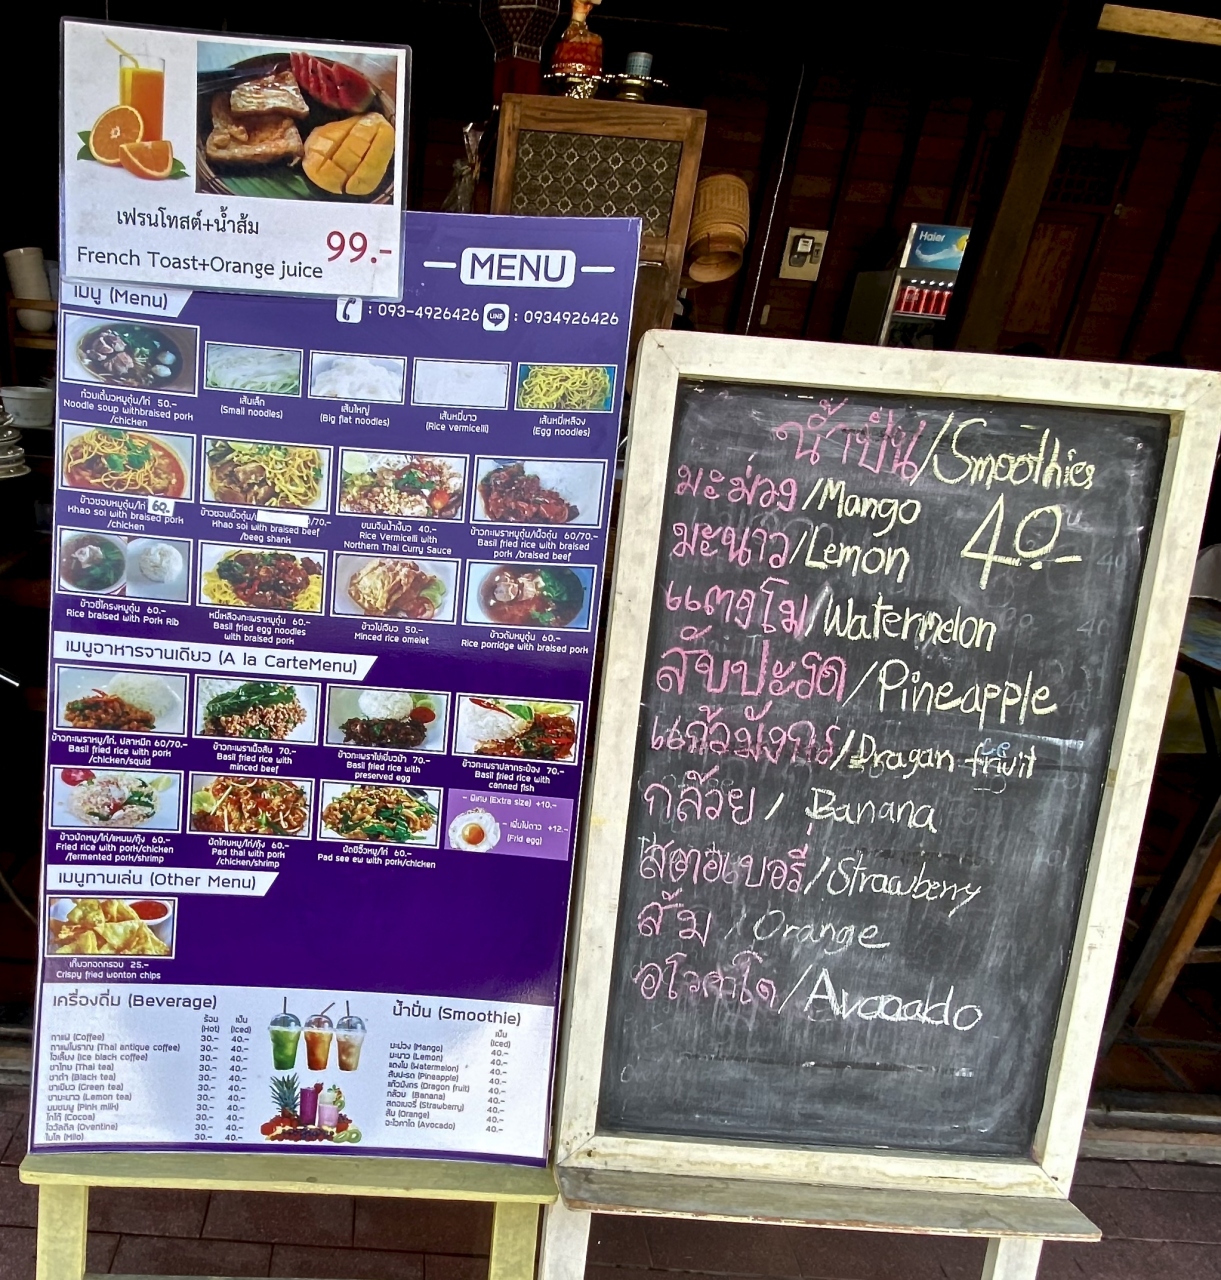 เฟรนโทสต์+น้ำส้ม
French Toast+Orange juice
99.-
MENU
เมนู (Menu)
: 093-4926426 LINE : 0934926426
ก๋วยเตี๋ยวหมูตุ๋น/ไก่ 50.-
Noodle soup withbraised pork
/chicken
เส้นเล็ก
(Small noodles)
เส้นใหญ่
(Big flat noodles)
เส้นหมี่ขาว
(Rice vermicelli)
เส้นหมี่เหลือง
(Egg noodles)
ข้าวซอยหมูตุ๋น/ไก่ 60.-
Khao soi with braised pork
/chicken
ข้าวซอยเนื้อตุ๋น/70.-
Khao soi with braised beef
/beeg shank
ขนมจีนน้ำเงี้ยว 40.-
Rice Vermicelli with
Northern Thai Curry Sauce
ข้าวกะเพราหมูตุ๋น/เนื้อตุ๋น 60/70.-
Basil fried rice with braised
pork /braised beef
ข้าวซี่โครงหมูตุ๋น 60.-
Rice braised with Pork Rib
หมี่เหลืองกะเพราหมูตุ๋น 60.-
Basil fried egg noodles
with braised pork
ข้าวไข่เจียว 50.-
Minced rice omelet
ข้าวต้มหมูตุ๋น 60.-
Rice porridge with braised pork
เมนูอาหารจานเดียว (A la CarteMenu)
ข้าวกะเพราหมู/ไก่, ปลาหมึก 60/70.-
Basil fried rice with pork
/chicken/squid
ข้าวกะเพราเนื้อสับ 70.-
Basil fried rice with
minced beef
ข้าวกะเพราไข่เยี่ยวม้า 70.-
Basil fried rice with
preserved egg
ข้าวกะเพราปลากระป๋อง 70.-
Basil fried rice with
canned fish
ข้าวผัดหมู/ไก่/แหนม/กุ้ง 60.-
Fried rice with pork/chicken
/fermented pork/shrimp
ผัดไทยหมู/ไก่/กุ้ง 60.-
Pad thai with pork
/chicken/shrimp
ผัดซีอิ๊วหมู/ไก่ 60.-
Pad see ew with pork/chicken
- พิเศษ (Extra size) +10.-
- เพิ่มไข่ดาว +12.-
(Frid egg)
เมนูทานเล่น (Other Menu)
เกี๊ยวทอดกรอบ 25.-
Crispy fried wonton chips
เครื่องดื่ม (Beverage)
ร้อน เย็น
(Hot) (Iced)
กาแฟ (Coffee) 30.- 40.-
กาแฟโบราณ (Thai antique coffee) 30.- 40.-
โอเลี้ยง (Ice black coffee) 30.- 40.-
ชาไทย (Thai tea) 30.- 40.-
ชาดำ (Black tea) 30.- 40.-
ชาเขียว (Green tea) 30.- 40.-
ชามะนาว (Lemon tea) 30.- 40.-
นมชมพู (Pink milk) 30.- 40.-
โกโก้ (Cocoa) 30.- 40.-
โอวัลติล (Oventine) 30.- 40.-
ไมโล (Milo) 30.- 40.-
น้ำปั่น (Smoothie)
เย็น
(Iced)
มะม่วง (Mango) 40.-
มะนาว (Lemon) 40.-
แตงโม (Watermelon) 40.-
สับปะรด (Pineapple) 40.-
แก้วมังกร (Dragon fruit) 40.-
กล้วย (Banana) 40.-
สตอเบอรี่ (Strawberry) 40.-
ส้ม (Orange) 40.-
อะโวคาโด (Avocado) 40.-
Haier
น้ำปั่น/Smoothies
มะม่วง/Mango
40.-
มะนาว/Lemon
แตงโม/Watermelon
สับปะรด/Pineapple
แก้วมังกร/Dragan fruit
กล้วย/Banana
สตอเบอรี่/Strawberry
ส้ม/Orange
อโวคาโด/Avocado